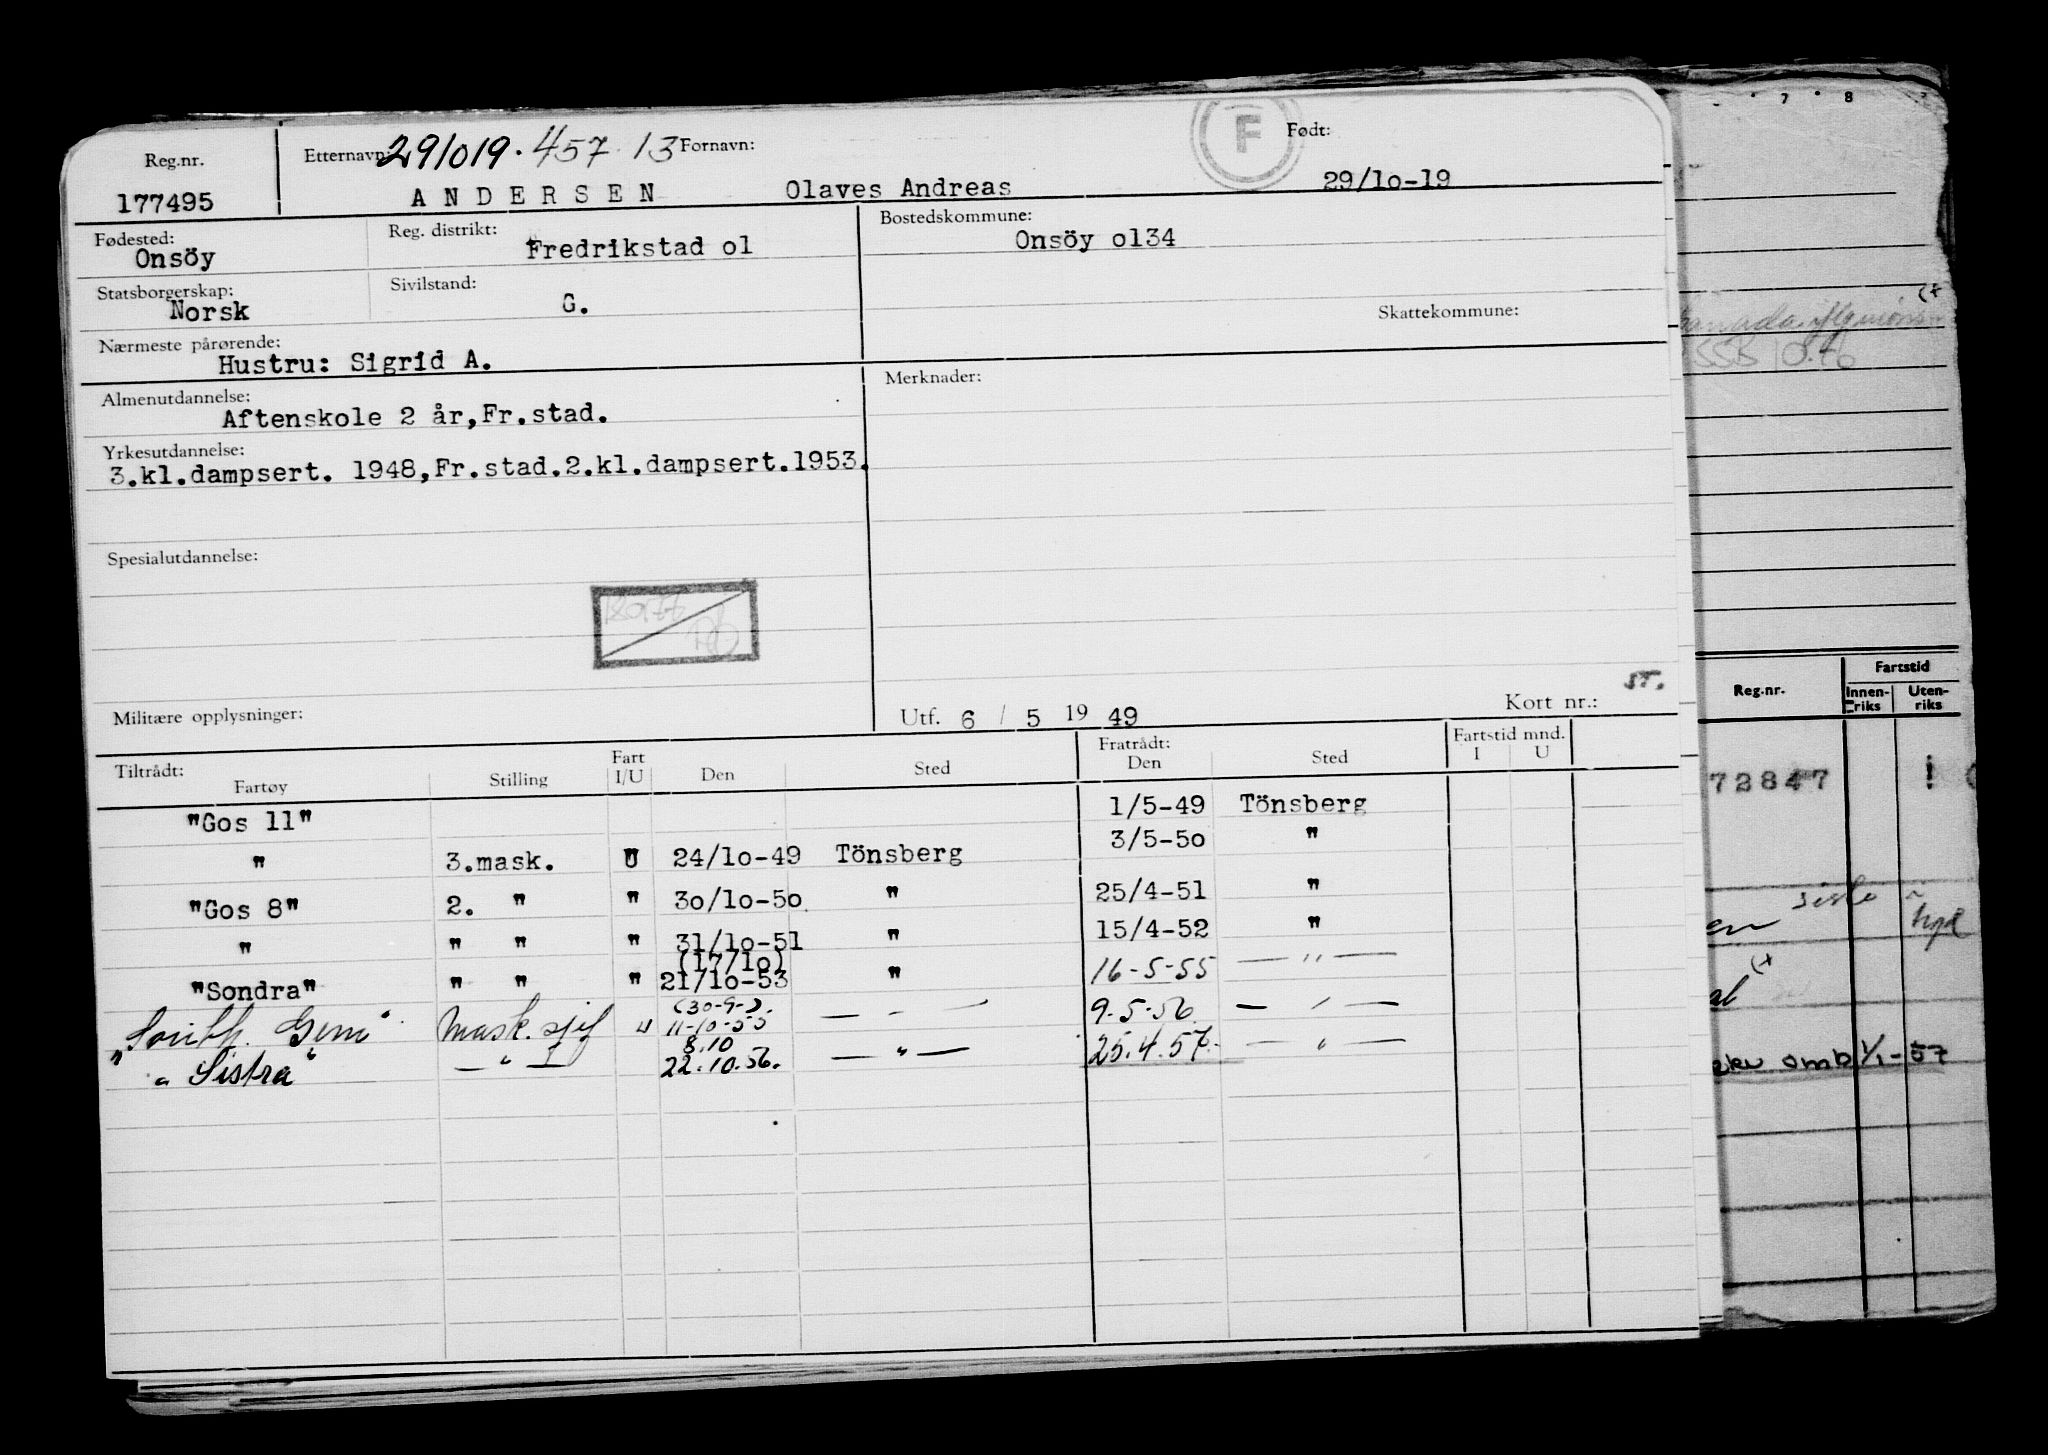 Reg.nr. Etternavn: 291019. 457 13 Fornavn: F Født:
177495 ANDERSEN Olaves Andreas 29/lo-19
Fødested: Reg. distrikt: Bostedskommune:
Onsöy Fredrikstad ol Onsöy ol34
Statsborgerskap: Sivilstand: Skattekommune:
Norsk G.
Nærmeste pårørende:
Hustru: Sigrid A.
Almenutdannelse: Merknader:
Aftenskole 2 år,Fr.stad.
Yrkesutdannelse:
3.kl.dampsert. 1948,Fr.stad.2.kl.dampsert.1953.
Spesialutdannelse:
Militære opplysninger: Utf. 6 / 5 19 49 Kort nr.: ST.
Tiltrådt: Fart Fratrådt: Fartstid mnd.
Fartøy Stilling I/U Den Sted Den Sted I U
"Gos 11" 1/5-49 Tönsberg
" 3.mask. U 24/lo-49 Tönsberg 3/5-5o "
"Gos 8" 2. " " 3o/lo-5o " 25/4-51 "
" " " " 31/lo-51 " 15/4-52 "
(17/lo)
"Sondra" " " " 21/lo-53 " 16-5-55 — " —
(30-9-).
"South. Gem" Mask. sjef " 11-10-55 — " — 9.5.56. — " —
8.10
"Sistra" — " — I 22.10.56. — " — 25.4.57. — " —
7 8
SSB
Reg.nr. Fartstid
Innen-riks Uten-riks
72847
siste
omb 1/1-57